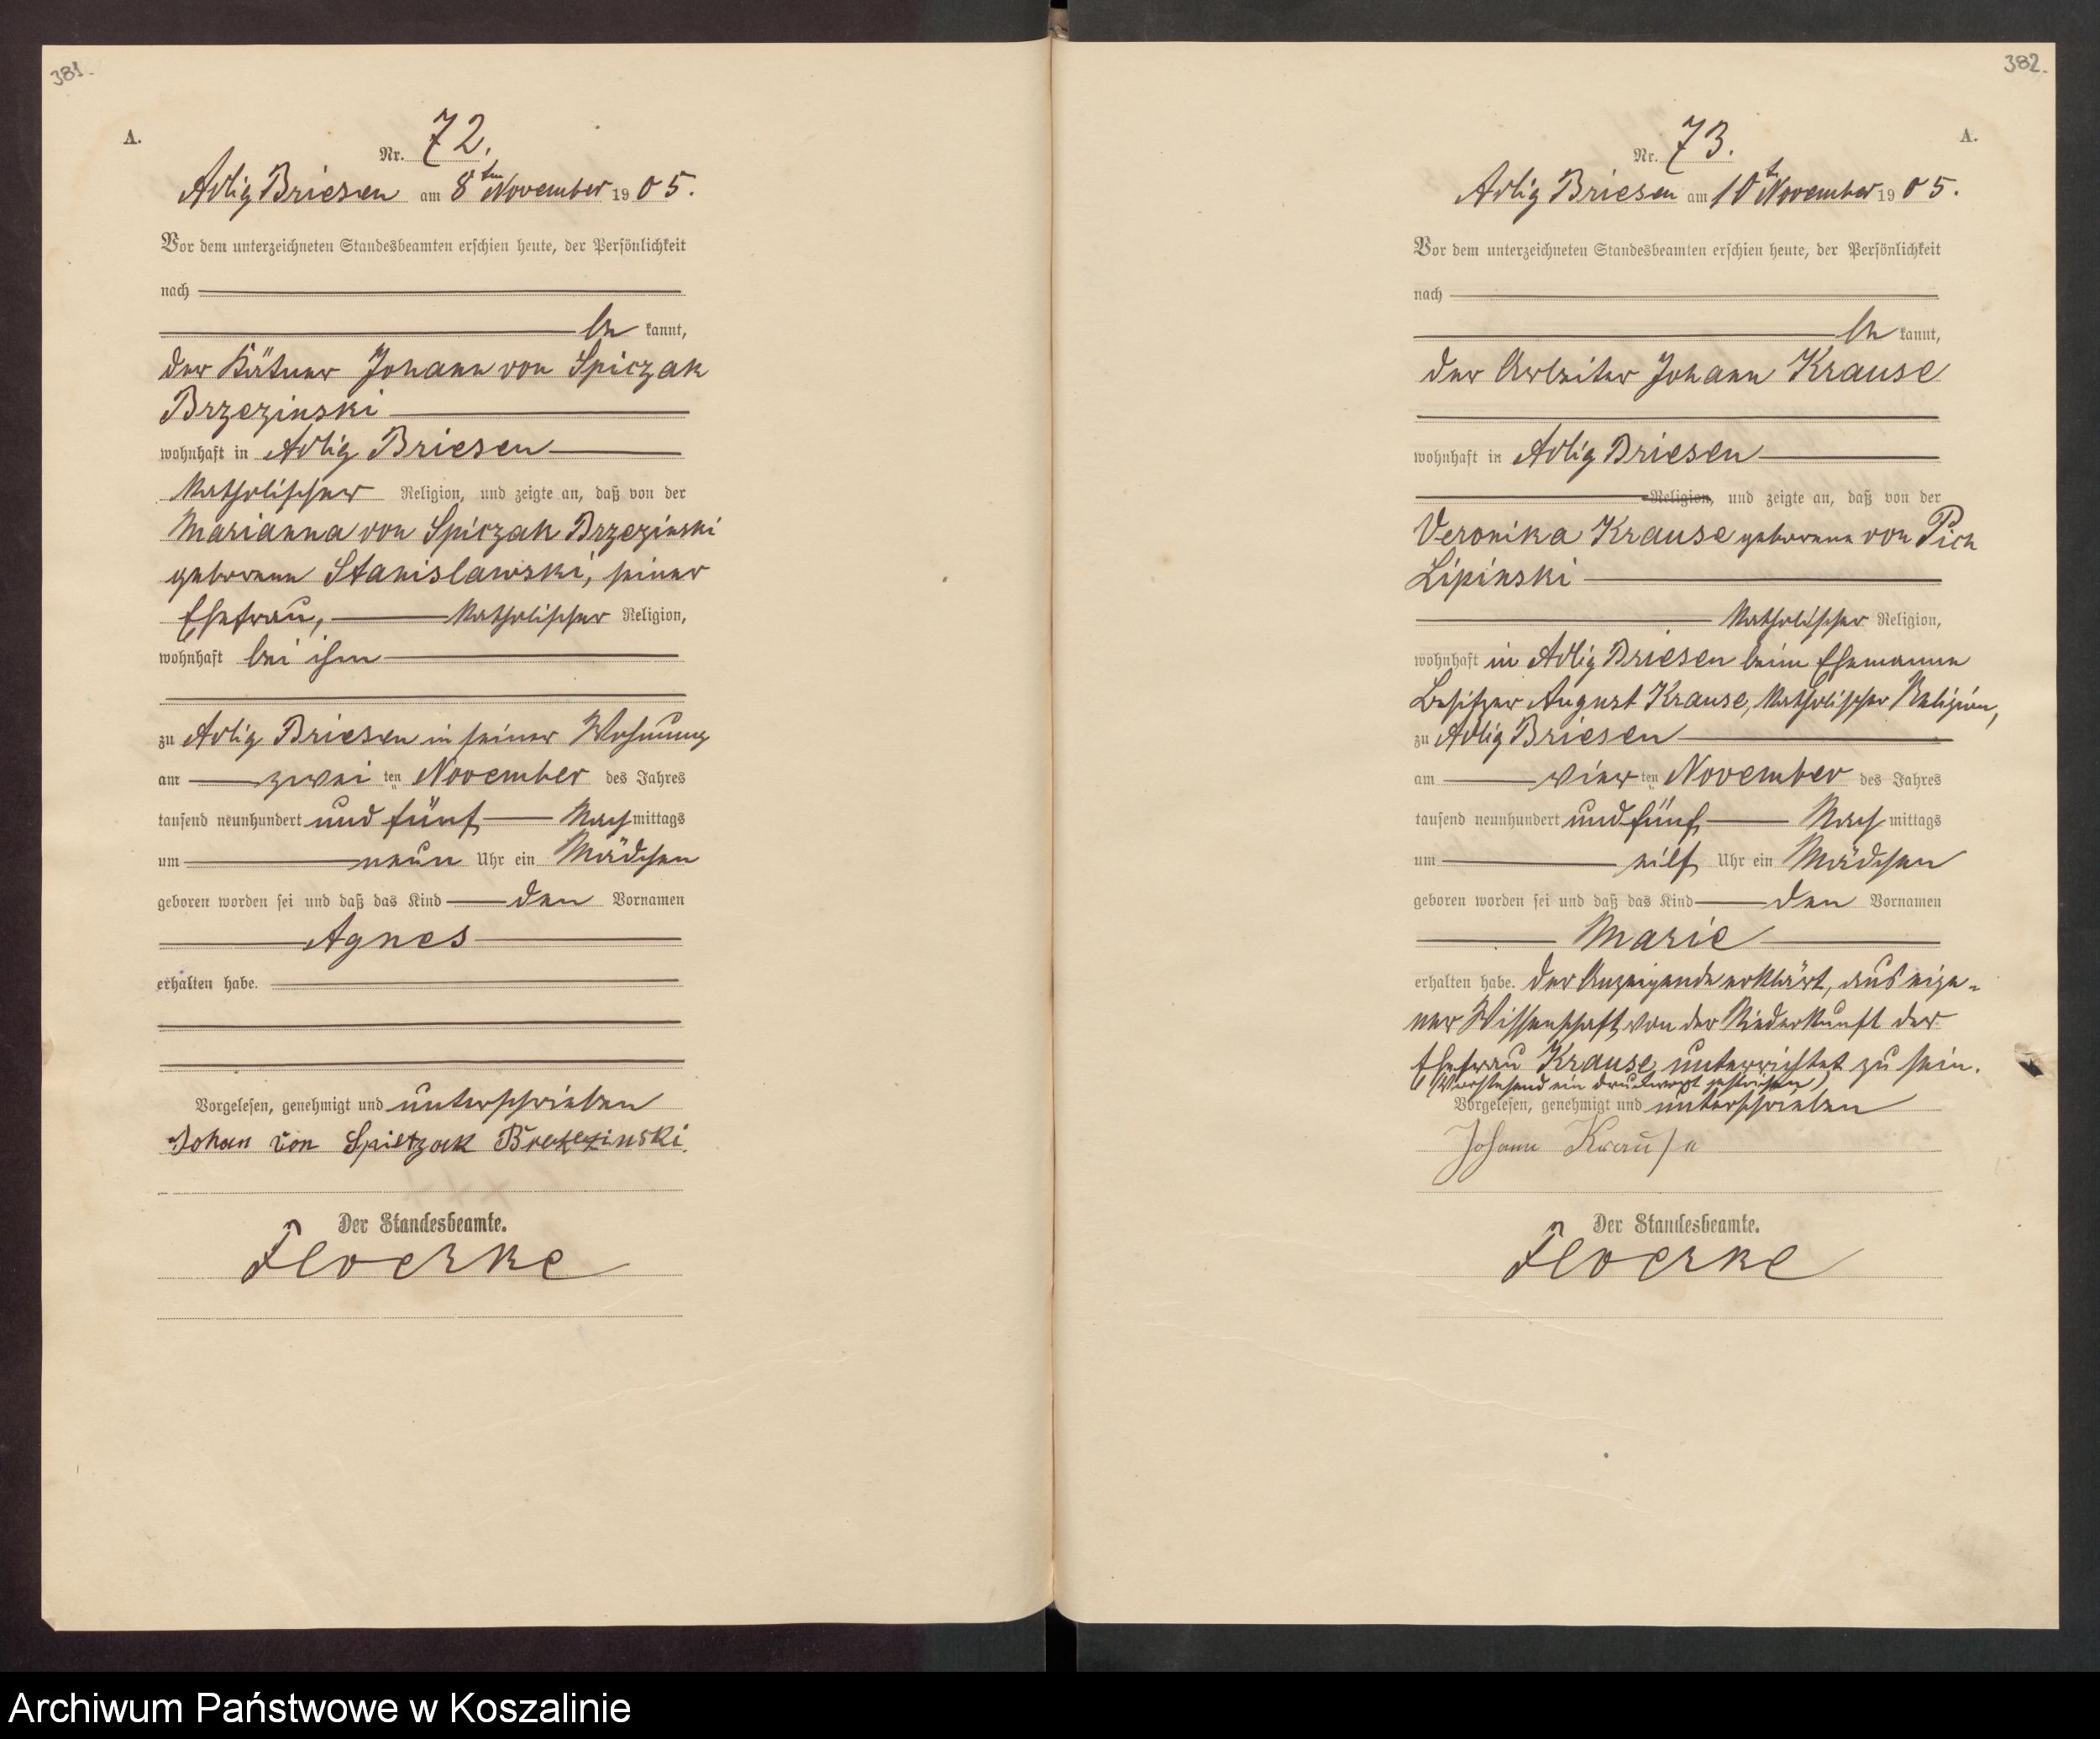 381.
A.
Nr. 72.
Adlig Briesen am 8ten November 1905.
Vor dem unterzeichneten Standesbeamten erschien heute, der Persönlichkeit
nach
be kannt,
der Kätner Johann von Spiczak
Brzezinski
wohnhaft in Adlig Briesen
katholischer Religion, und zeigte an, daß von der
Marianna von Spiczak Brzezinski
geborene Stanislawski, seiner
Ehefrau, katholischer Religion,
wohnhaft bei ihm
zu Adlig Briesen in seiner Wohnung
am zwei ten November des Jahres
tausend neunhundert und fünf Nach mittags
um neun Uhr ein Mädchen
geboren worden sei und daß das Kind den Vornamen
Agnes
erhalten habe.
Vorgelesen, genehmigt und unterschrieben
Johan von Spietzak Brezezinski.
Der Standesbeamte.
Floerke
382.
A.
Nr. 73.
Adlig Briesen am 10ten November 1905.
Vor dem unterzeichneten Standesbeamten erschien heute, der Persönlichkeit
nach
be kannt,
der Arbeiter Johann Krause
wohnhaft in Adlig Briesen
Religion, und zeigte an, daß von der
Veronika Krause geborene von Pich
Lipinski
katholischer Religion,
wohnhaft in Adlig Briesen beim Ehemanne
Besitzer August Krause, katholischer Religion,
zu Adlig Briesen
am vier ten November des Jahres
tausend neunhundert und fünf Nach mittags
um eilf Uhr ein Mädchen
geboren worden sei und daß das Kind den Vornamen
Marie
erhalten habe. Der Anzeigende erklärt, aus eige-
ner Wissenschaft von der Niederkunft der
Ehefrau Krause unterrichtet zu sein.
(Vorstehend ein Druckwort gestrichen)
Vorgelesen, genehmigt und unterschrieben
Johann Krause
Der Standesbeamte.
Floerke
Archiwum Państwowe w Koszalinie